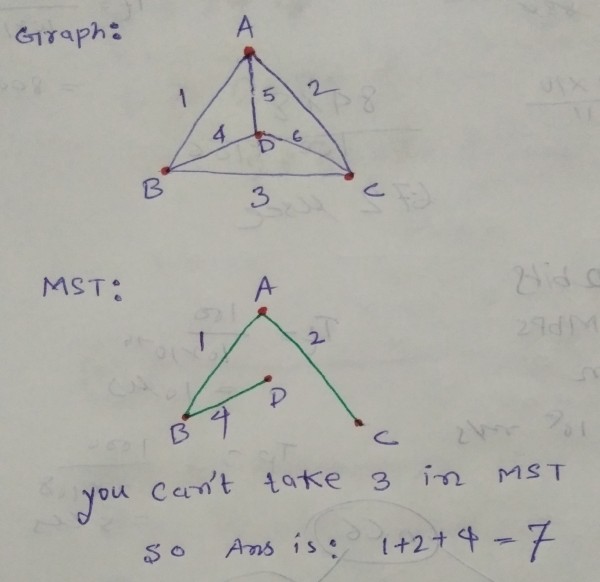 Graph:
A
1 5 2
4 D 6
B 3 C
MST:
A
1 2
D
B 4 C
you can't take 3 in MST
so Ans is: 1+2+4 = 7